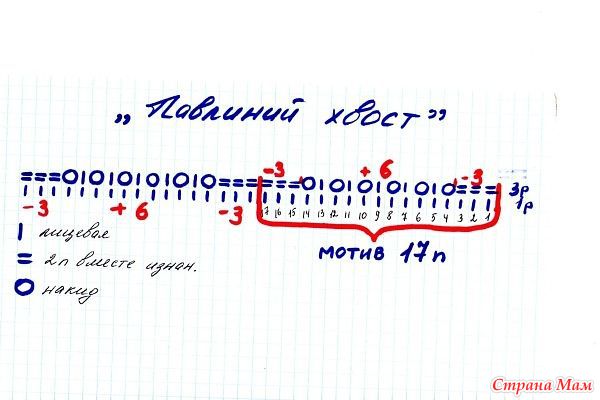 „Павлиний хвост”
-3 +6 -3
3р
1р
17 16 15 14 13 12 11 10 9 8 7 6 5 4 3 2 1
-3 +6 -3
лицевая
мотив 17п
2п вместе изнан.
накид
Страна Мам